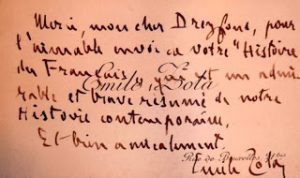 Merci, mon cher Dreyfous, pour
l'aimable envoi de votre "Histoire
du Français", qui est un admi-
rable et brave résumé de notre
Histoire contemporaine.
Et bien amicalement.
Émile Zola
Rue de Bruxelles
Emile Zola